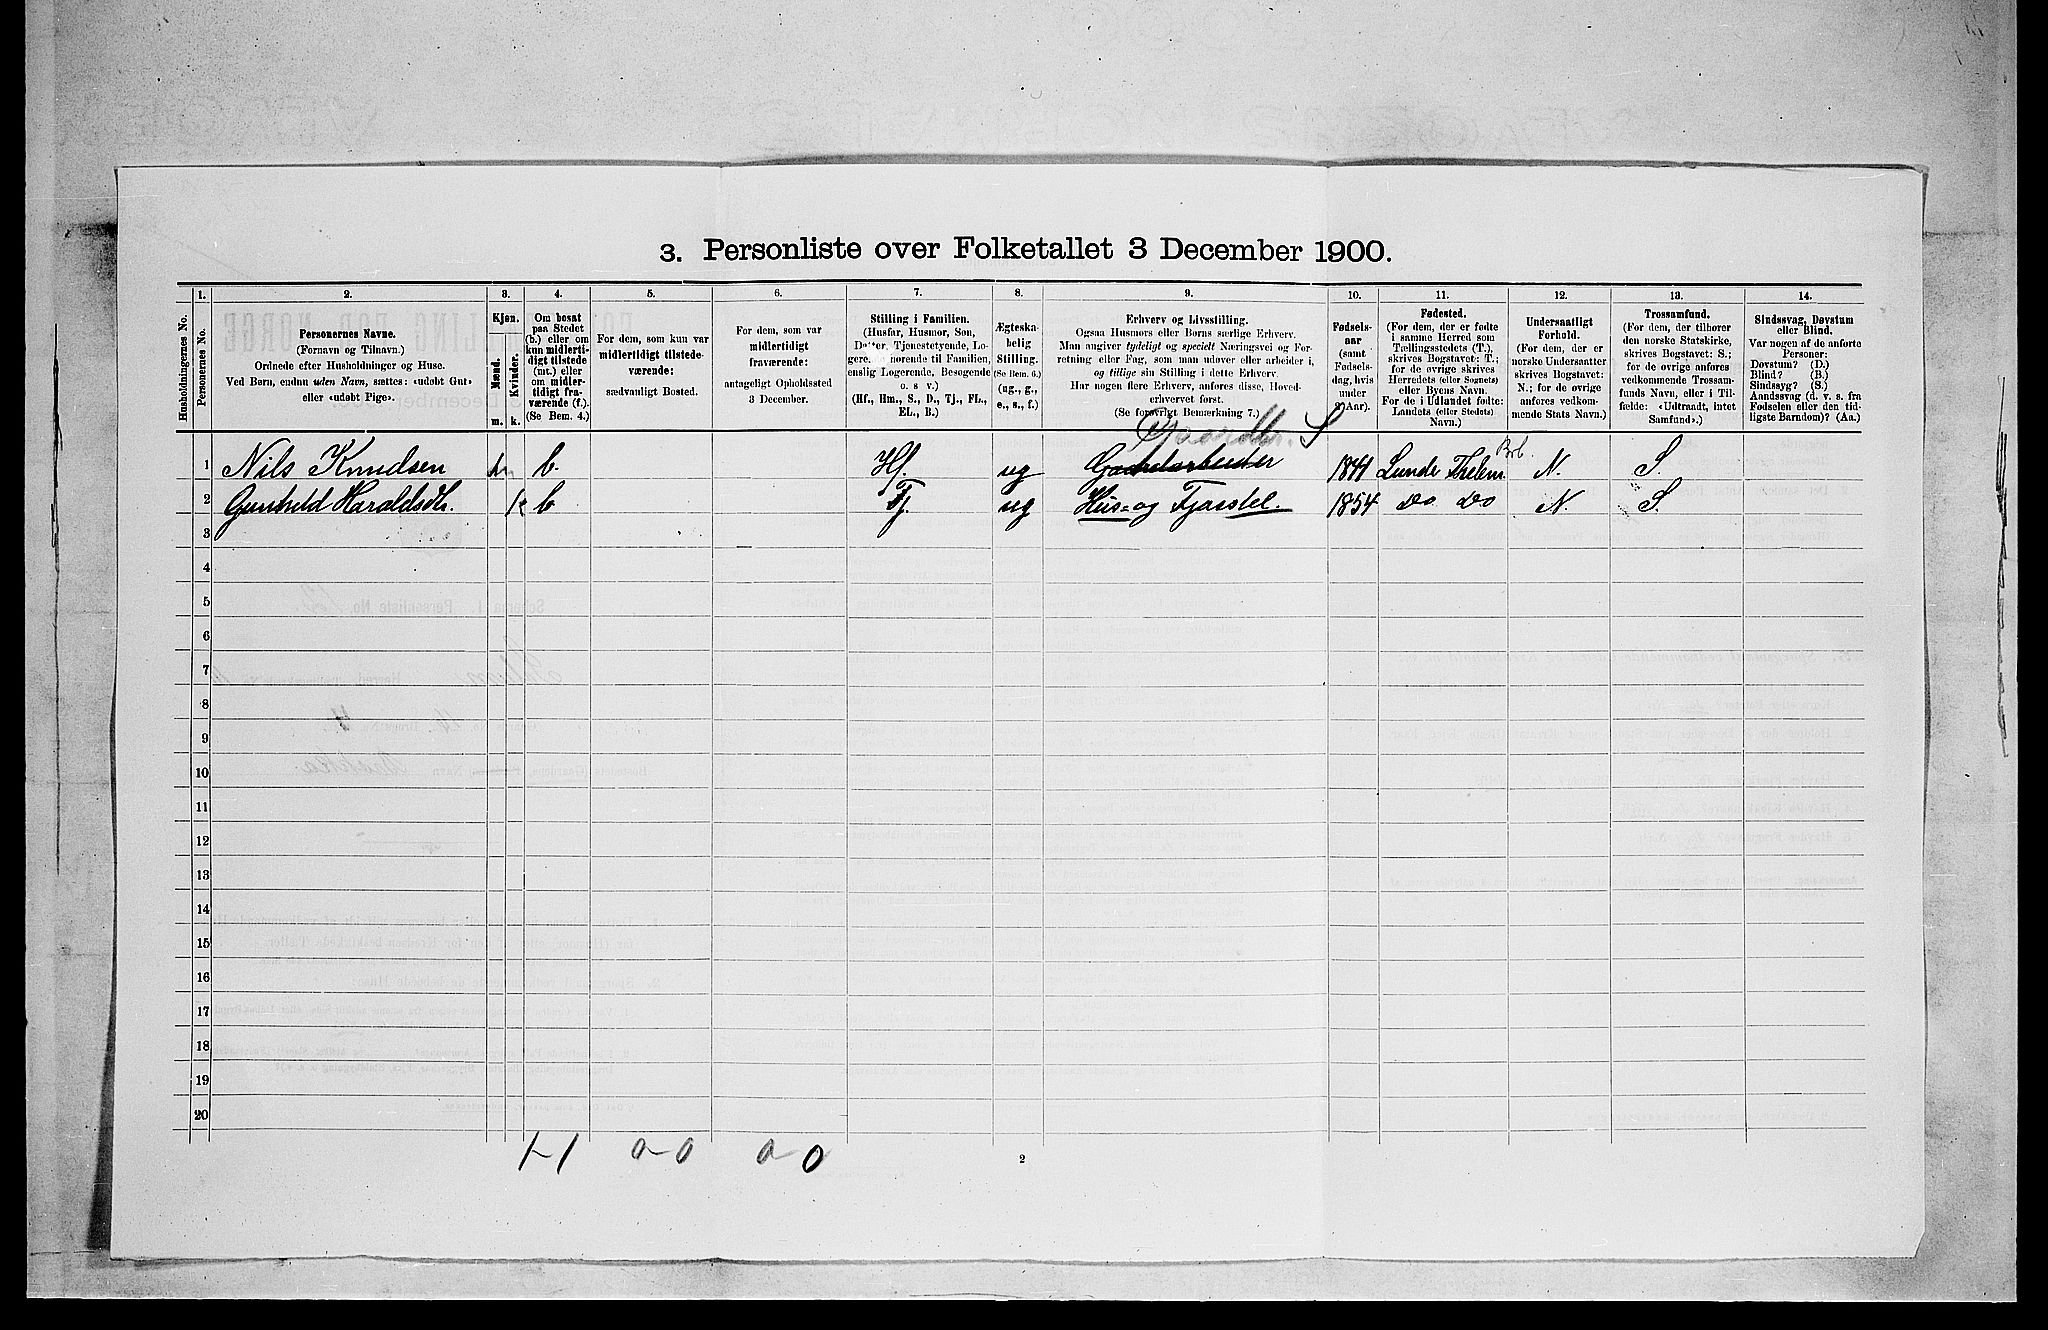 3. Personliste over Folketallet 3 December 1900.
Husholdningernes No.
1.
Personernes No.
2.
Personernes Navne.
(Fornavn og Tilnavn.)
Ordnede efter Husholdninger og Huse.
Ved Børn, endnu uden Navn, sættes: «udøbt Gut»
eller «udøbt Pige».
3.
Kjøn.
Mænd.
Kvinder.
m. k.
4.
Om bosat
paa Stedet
(b.) eller om
kun midlerti-
digt tilstede
(mt.) eller
om midler-
tidigt fra-
værende (f.).
(Se Bem. 4.)
5.
For dem, som kun var
midlertidigt tilstede-
værende:
sædvanligt Bosted.
6.
For dem, som var
midlertidigt
fraværende:
antageligt Opholdssted
3 December.
7.
Stilling i Familien.
(Husfar, Husmor, Søn,
Datter, Tjenestetyende, Lo-
gerende hørende til Familien,
enslig Logerende, Besøgende
o. s v.)
(Hf., Hm., S., D., Tj., FL.,
EL., B.)
8.
Ægteska-
belig
Stilling.
(Se Bem. 6.)
(ug., g.,
e., s., f.)
9.
Erhverv og Livsstilling.
Ogsaa Husmors eller Børns særlige Erhverv.
Man angiver tydeligt og specielt Næringsvei og For-
retning eller Fag, som man udøver eller arbeider i,
og tillige sin Stilling i dette Erhverv.
Har nogen flere Erhverv, anføres disse, Hoved-
erhvervet først.
(Se forøvrigt Bemærkning 7.)
10.
Fødsels-
aar
(samt
Fødsels-
dag, hvis
under
2 Aar).
11.
Fødested.
(For dem, der er fødte
i samme Herred som
Tællingsstedets (T.),
skrives Bogstavet: T.;
for de øvrige skrives
Herredets (eller Sognets)
eller Byens Navn.
For de i Udlandet fødte:
Landets (eller Stedets)
Navn.)
12.
Undersaatligt
Forhold.
(For dem, der er
norske Undersaatter
skrives Bogstavet:
N.; for de øvrige
anføres vedkom-
mende Stats Navn.)
13.
Trossamfund.
(For dem, der tilhører
den norske Statskirke,
skrives Bogstavet: S.;
for de øvrige anføres
vedkommende Trossam-
funds Navn, eller i Til-
fælde: «Udtraadt, intet
Samfund».)
14.
Sindssvag, Døvstum
eller Blind.
Var nogen af de anførte
Personer:
Døvstum? (D.)
Blind? (B.)
Sindssyg? (S.)
Aandssvag (d. v. s. fra
Fødselen eller den tid-
ligste Barndom)? (Aa.)
Gaardbr. S
1 Nils Knudsen m b. Hf. ug Gaardarbeider 1841 Lunde Thelem. Brb. N. S.
2 Gunhild Haraldsdtr. k b Tj. ug Hus- og Fjøsstel. 1854 Do Do N. S.
3
4
5
6
7
8
9
10
11
12
13
14
15
16
17
18
19
20
1-1 0-0 0-0
2